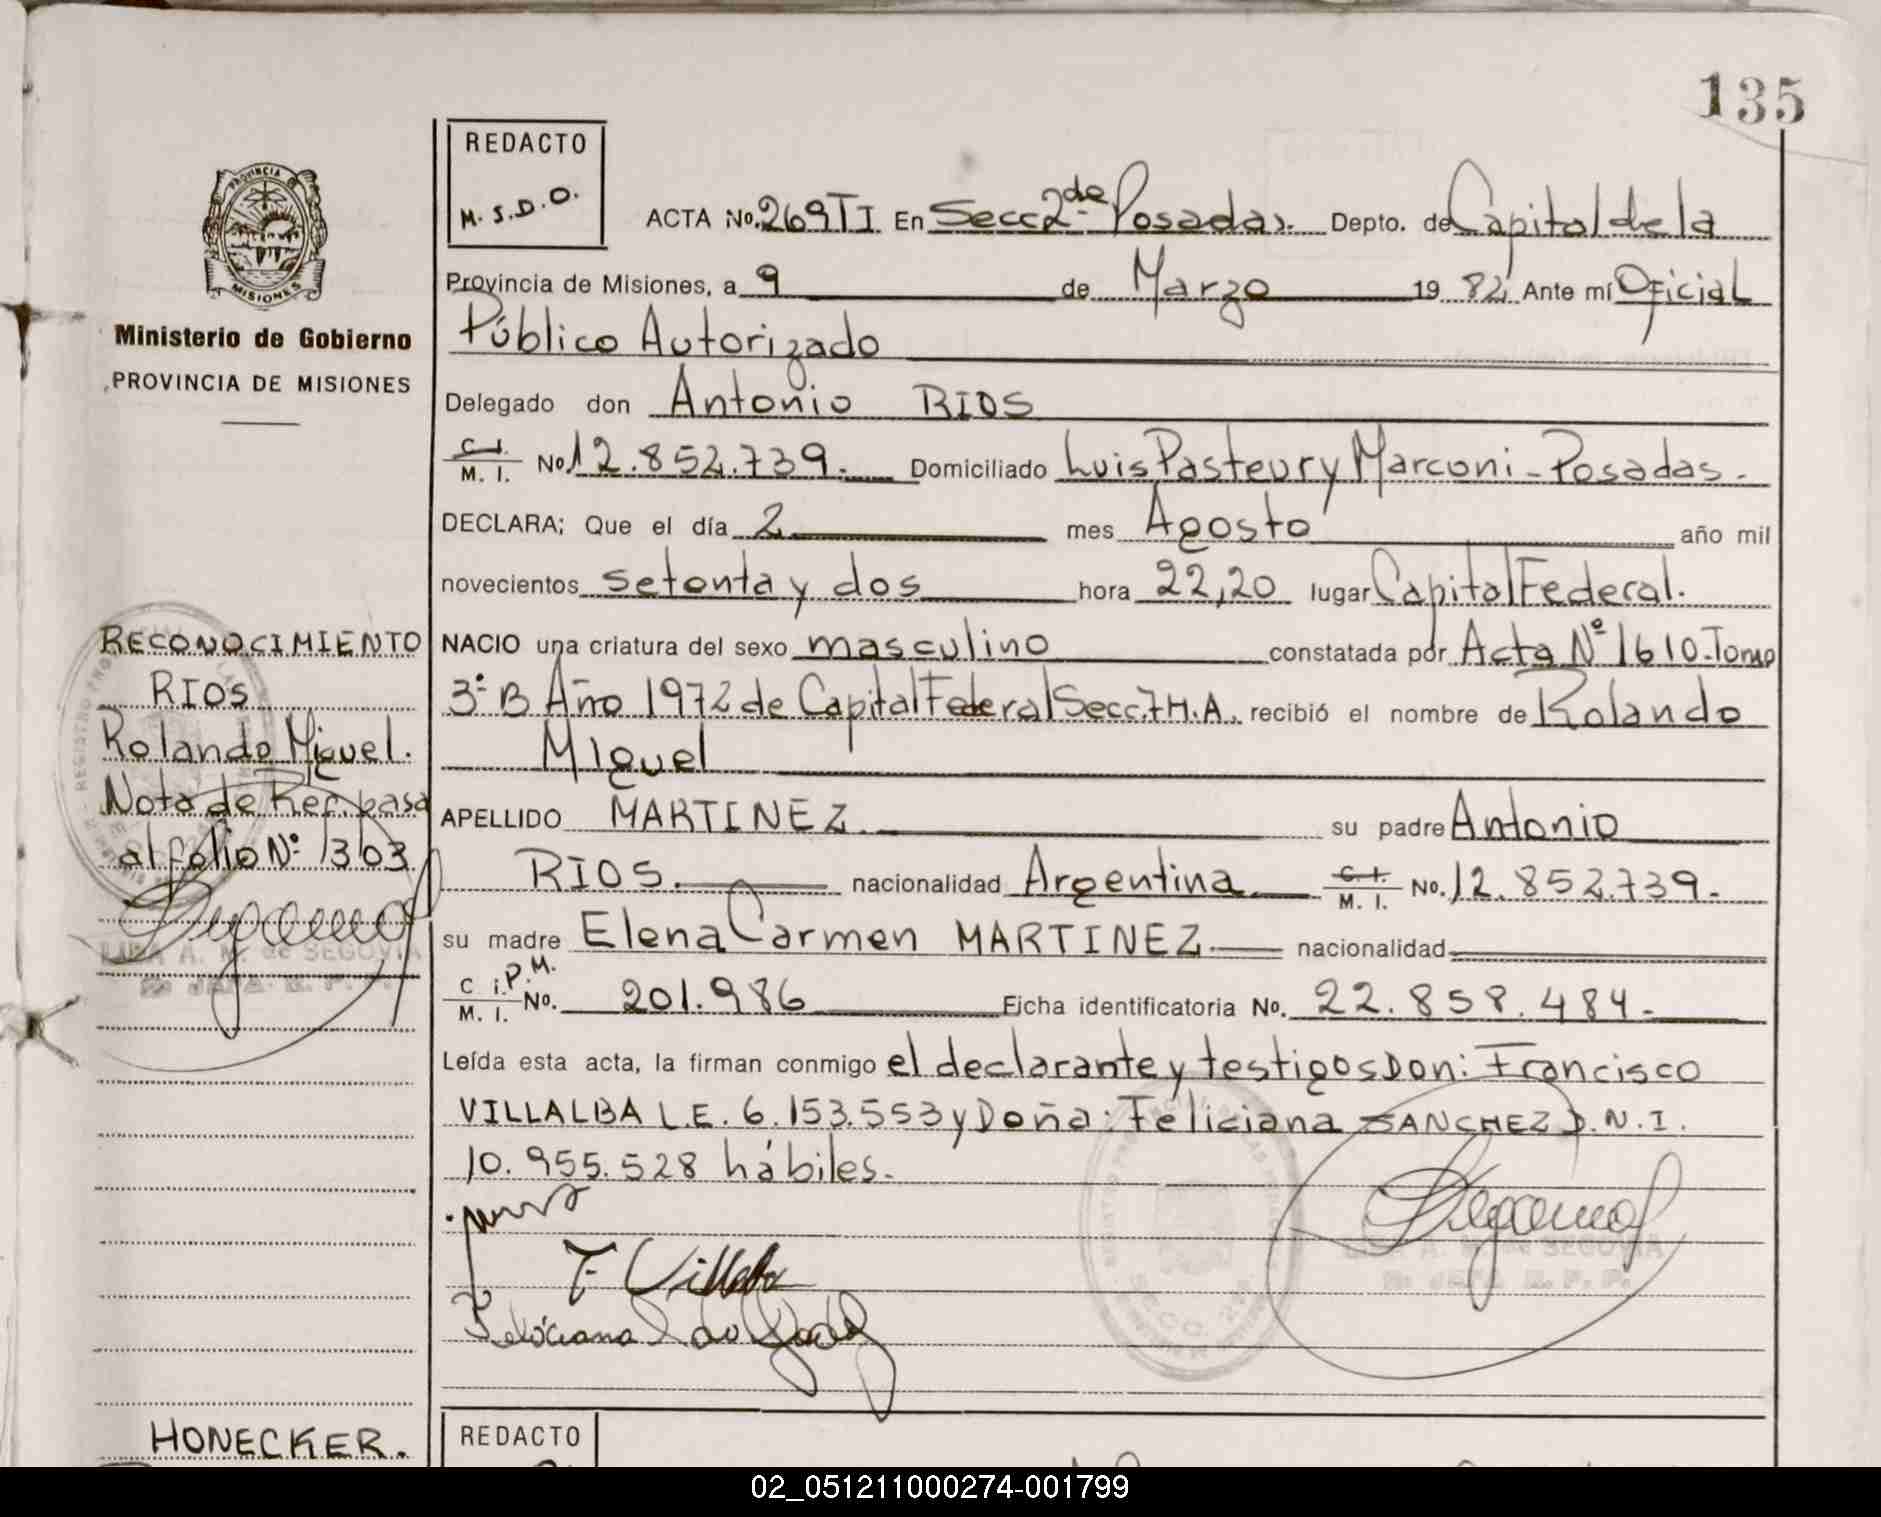 135
REDACTO
M.S.D.O.
ACTA No. 269TI En Secc 2da Posadas. Depto. de Capital de la
Provincia de Misiones, a 9 de Marzo 1982 Ante mí Oficial
Público Autorizado
Delegado don Antonio RIOS
C.I. M.I. No 12.852.739. Domiciliado Luis Pasteur y Marconi - Posadas.
DECLARA; Que el día 2 mes Agosto año mil
novecientos setenta y dos hora 22,20 lugar Capital Federal.
NACIO una criatura del sexo masculino constatada por Acta Nº 1610-Tomo
3º B Año 1972 de Capital Federal Secc. 7 H.A. recibió el nombre de Rolando
Miguel
APELLIDO MARTINEZ su padre Antonio
RIOS. nacionalidad Argentina C.I. M.I. No. 12.852.739.
su madre Elena Carmen MARTINEZ nacionalidad
C i. P.M. M.I. No. 201.986 Ficha identificatoria No. 22.858.484.
Leída esta acta, la firman conmigo el declarante y testigos Don: Francisco
VILLALBA L.E. 6.153.553 y Doña: Feliciana SANCHEZ D.N.I.
10.955.528 hábiles.
F Villalba
Feliciana
A. M. de SEGOVIA
JEFA R. P. P.
PROVINCIA
MISIONES
Ministerio de Gobierno
PROVINCIA DE MISIONES
RECONOCIMIENTO
RIOS
Rolando Miguel.
Nota de Ref. pasa
al folio Nº 1303
A. M. de SEGOVIA
JEFA R. P. P.
HONECKER.
REDACTO
02_051211000274-001799